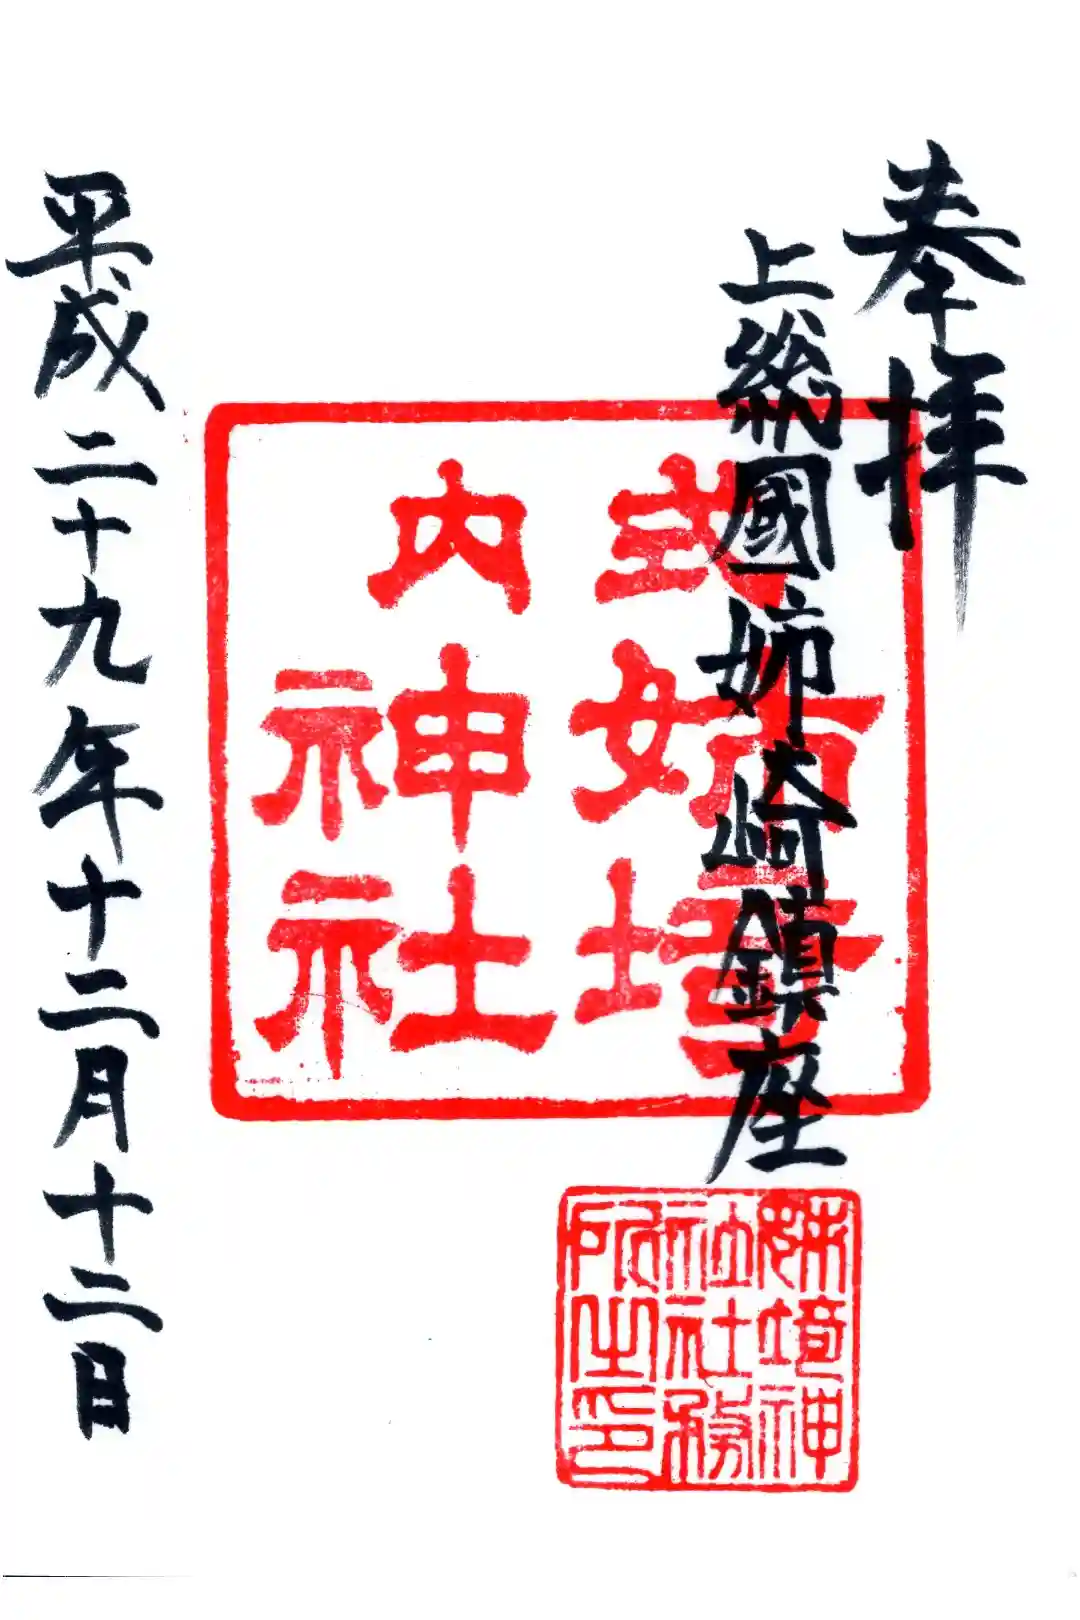 奉拝
上総國姉崎鎮座
式姉埼
内神社
姉埼神
社社務
所之印
平成二十九年十二月十二日